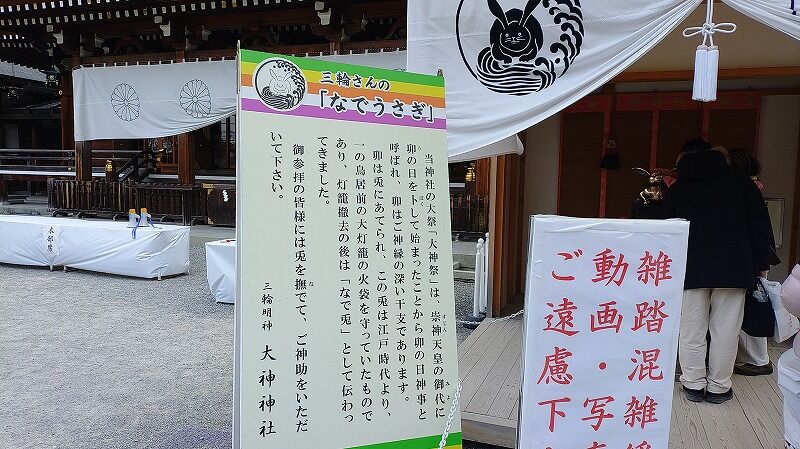 三輪さんの
「なでうさぎ」
当神社の大祭「大神祭」は、崇神天皇の御代に
卯の日を卜して始まったことから卯の日神事と
呼ばれ、卯はご神縁の深い干支であります。
卯は兎にあてられ、この兎は江戸時代より、
一の鳥居前の大灯籠の火袋を守っていたもので
あり、灯籠撤去の後は「なで兎」として伝わっ
てきました。
御参拝の皆様には兎を撫でて、ご神助をいただ
いて下さい。
三輪明神 大神神社
雑踏混雑
動画・写
ご遠慮下